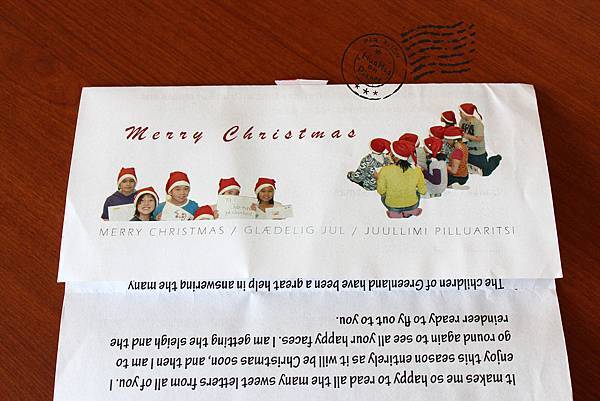 Merry Christmas
MERRY CHRISTMAS / GLÆDELIG JUL / JUULLIMI PILLUARITSI
It makes me so happy to read all the many sweet letters from all of you. I
enjoy this season entirely as it will be Christmas soon, and then I am to
go round again to see all your happy faces. I am getting the sleigh and the
reindeer ready to fly out to you.
The children of Greenland have been a great help in answering the many